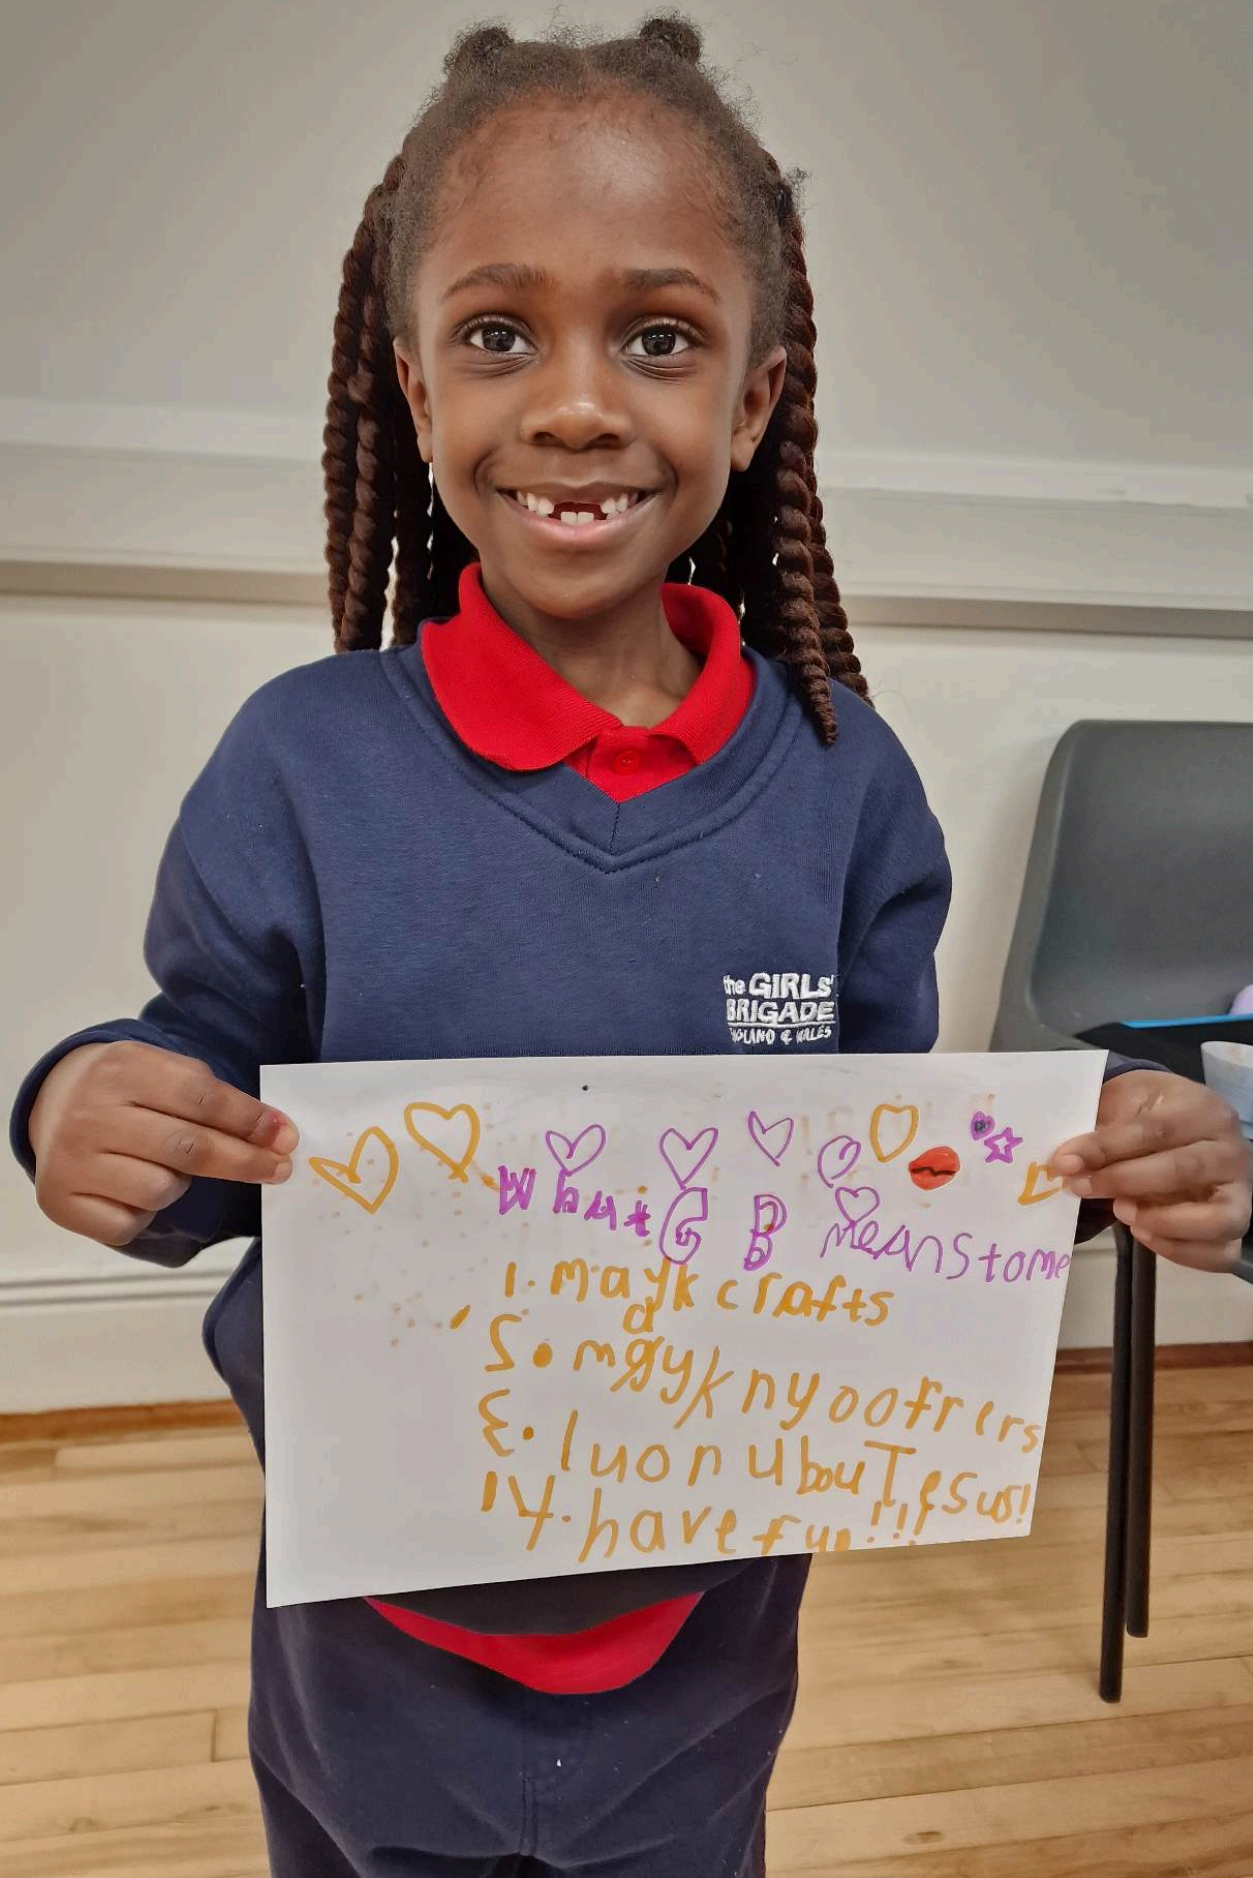 the GIRLS'
BRIGADE
ENGLAND & WALES
What GB means to me
1. mayk crafts
2. mayk nyoo frers
3. luon ubou Jesus!
4. have fun!!!